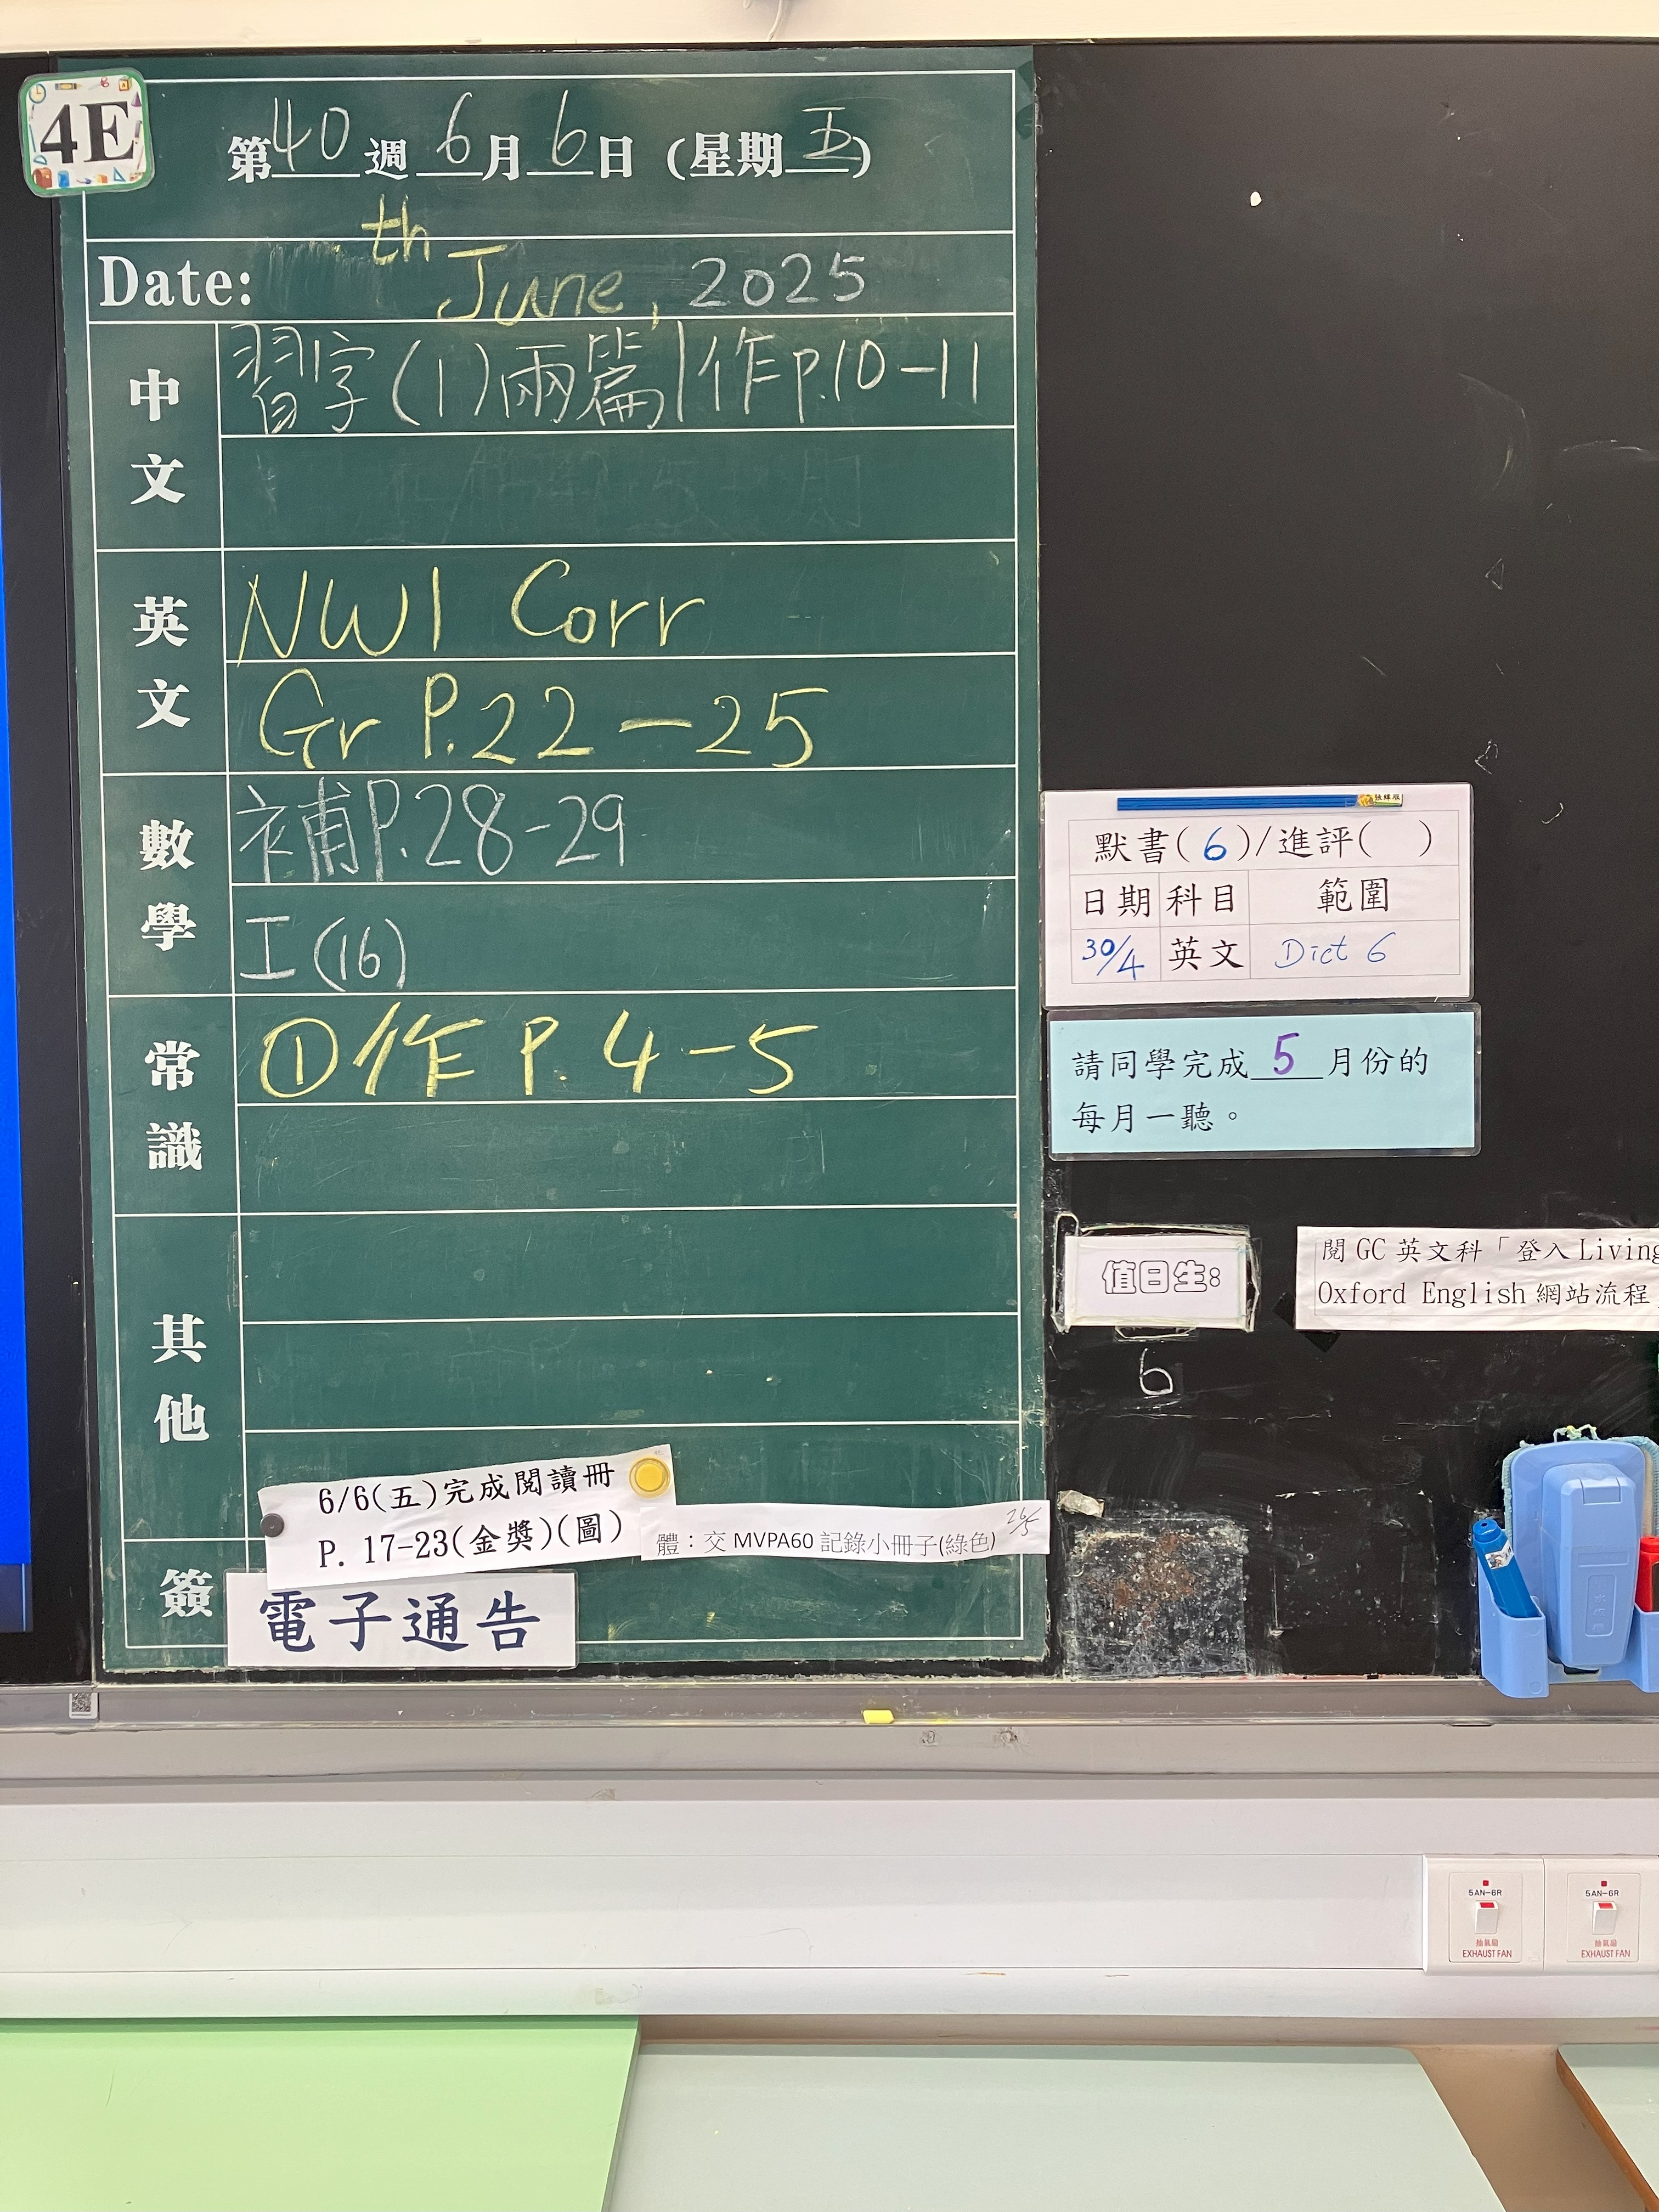 4E
第40週 6月6日 (星期五)
Date: th June, 2025
中文
習字(1)兩篇|作P.10-11
英文
NW1 Corr
Gr P.22-25
數學
補P.28-29
工(16)
常識
①作 P.4-5
其他
6/6(五)完成閱讀冊
P. 17-23(金獎)(圖)
體：交 MVPA60 記錄小冊子(綠色)
26/5
簽
電子通告
默書(6)/進評( )
日期 科目 範圍
30/4 英文 Dict 6
請同學完成5月份的
每月一聽。
值日生:
6
閱 GC 英文科「登入 Living
Oxford English 網站流程」
5AN-6R
抽氣扇
EXHAUST FAN
5AN-6R
抽氣扇
EXHAUST FAN